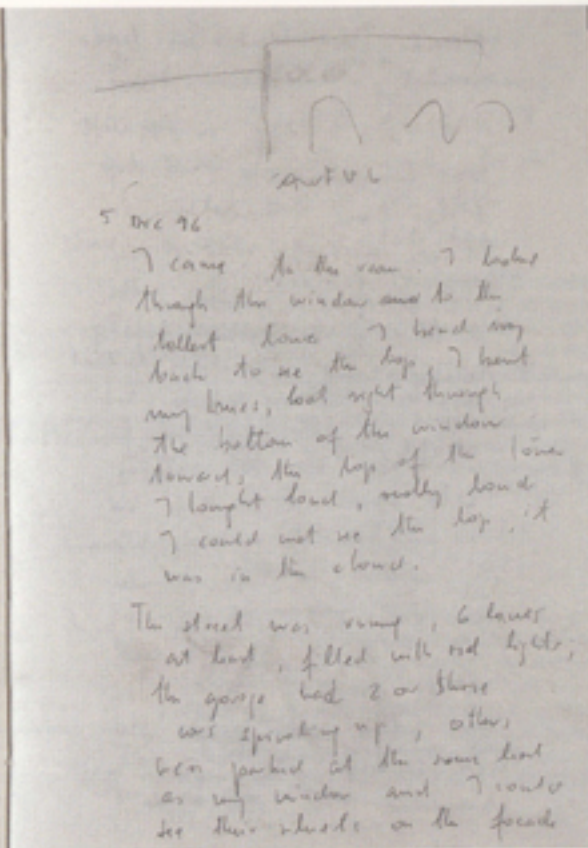 AWFUL
5 DEC 96
I came to the room. I looked
through the window and to the
tallest tower I bend my
back to see the top, I bent
my knees, look right through
the bottom of the window
towards the top of the tower
I laught loud, really loud
I could not see the top, it
was in the cloud.
The street was, 6 lanes
at least, filled with red lights,
the garage had 2 or three
cars spiraling up, others
were parked at the same level
as my window and I could
see their wheels on the facade